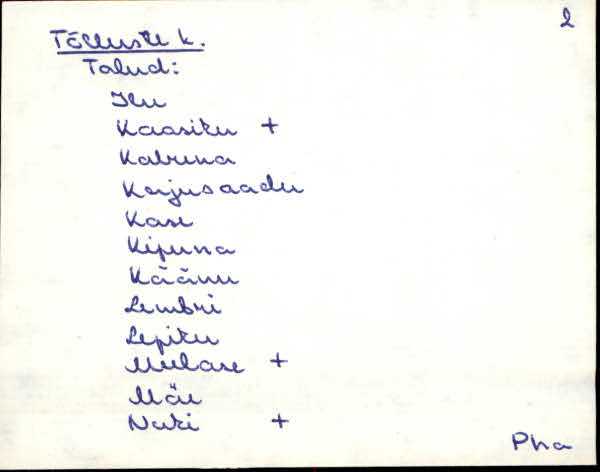 2
Tõlluste k.
Talud:
Ilu
Kaasiku +
Kabruna
Karjusaadu
Kase
Kipuna
Käänu
Lembri
Lepiku
Meelase +
Mäe
Naki +
Pha